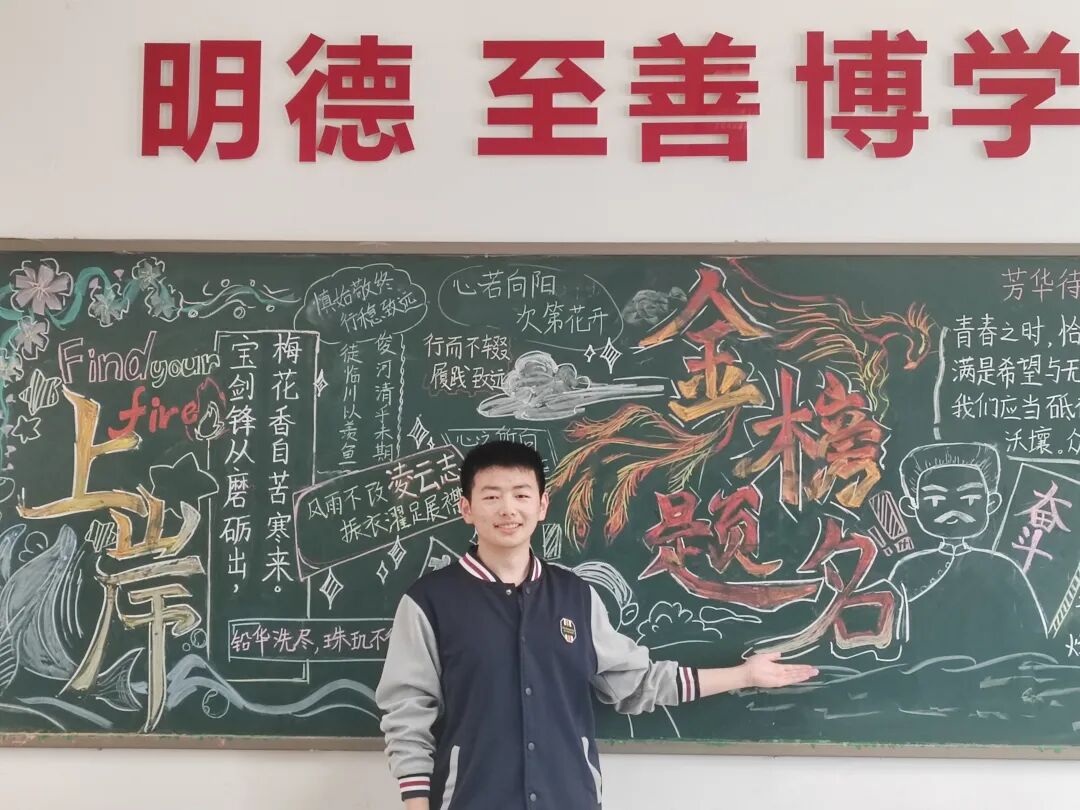 明德 至善 博学
Find your
fire
上岸
宝剑锋从磨砺出，
梅花香自苦寒来。
慎始敬终
行稳致远
徒临川以羡鱼
俟河清乎未期
心若向阳
次第花开
行而不辍
履践致远
心之所向
风雨不改凌云志
振衣濯足展襟
铅华洗尽，珠玑不
金榜题名
芳华待
青春之时，恰
满是希望与无
我们应当砥
沃壤。众
奋斗